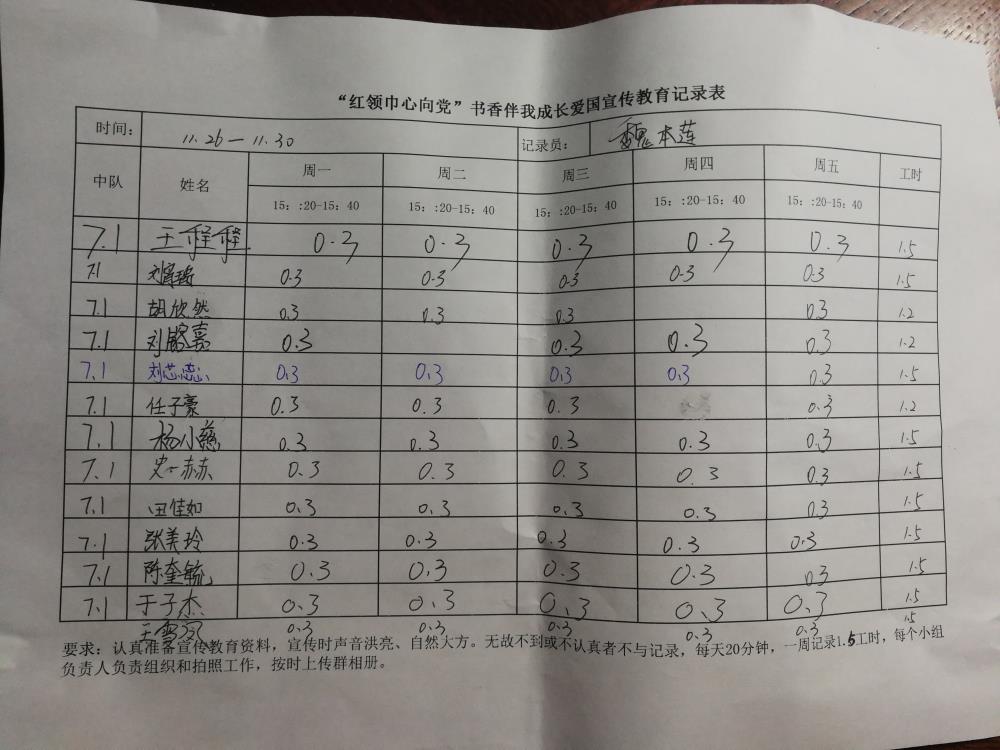 “红领巾心向党”书香伴我成长爱国宣传教育记录表
时间： 11.26—11.30 记录员： 魏本莲
中队 姓名 周一 周二 周三 周四 周五 工时
15：:20-15：40 15：:20-15：40 15：:20-15：40 15：:20-15：40 15：:20-15：40
7.1 王程程 0.3 0.3 0.3 0.3 0.3 1.5
7.1 0.3 0.3 0.3 0.3 0.3 1.5
7.1 胡欣然 0.3 0.3 0.3 0.3 1.2
7.1 0.3 0.3 0.3 0.3 1.2
7.1 刘芯蕊 0.3 0.3 0.3 0.3 0.3 1.5
7.1 任子豪 0.3 0.3 0.3 0.3 1.2
7.1 杨小慈 0.3 0.3 0.3 0.3 0.3 1.5
7.1 0.3 0.3 0.3 0.3 0.3 1.5
7.1 田佳如 0.3 0.3 0.3 0.3 0.3 1.5
7.1 张美玲 0.3 0.3 0.3 0.3 0.3 1.5
7.1 陈奎毓 0.3 0.3 0.3 0.3 0.3 1.5
7.1 于子杰 0.3 0.3 0.3 0.3 0.3 1.5
0.3 0.3 0.3 0.3 0.3 1.5
要求：认真准备宣传教育资料，宣传时声音洪亮、自然大方。无故不到或不认真者不与记录，每天20分钟，一周记录1.5工时，每个小组
负责人负责组织和拍照工作，按时上传群相册。